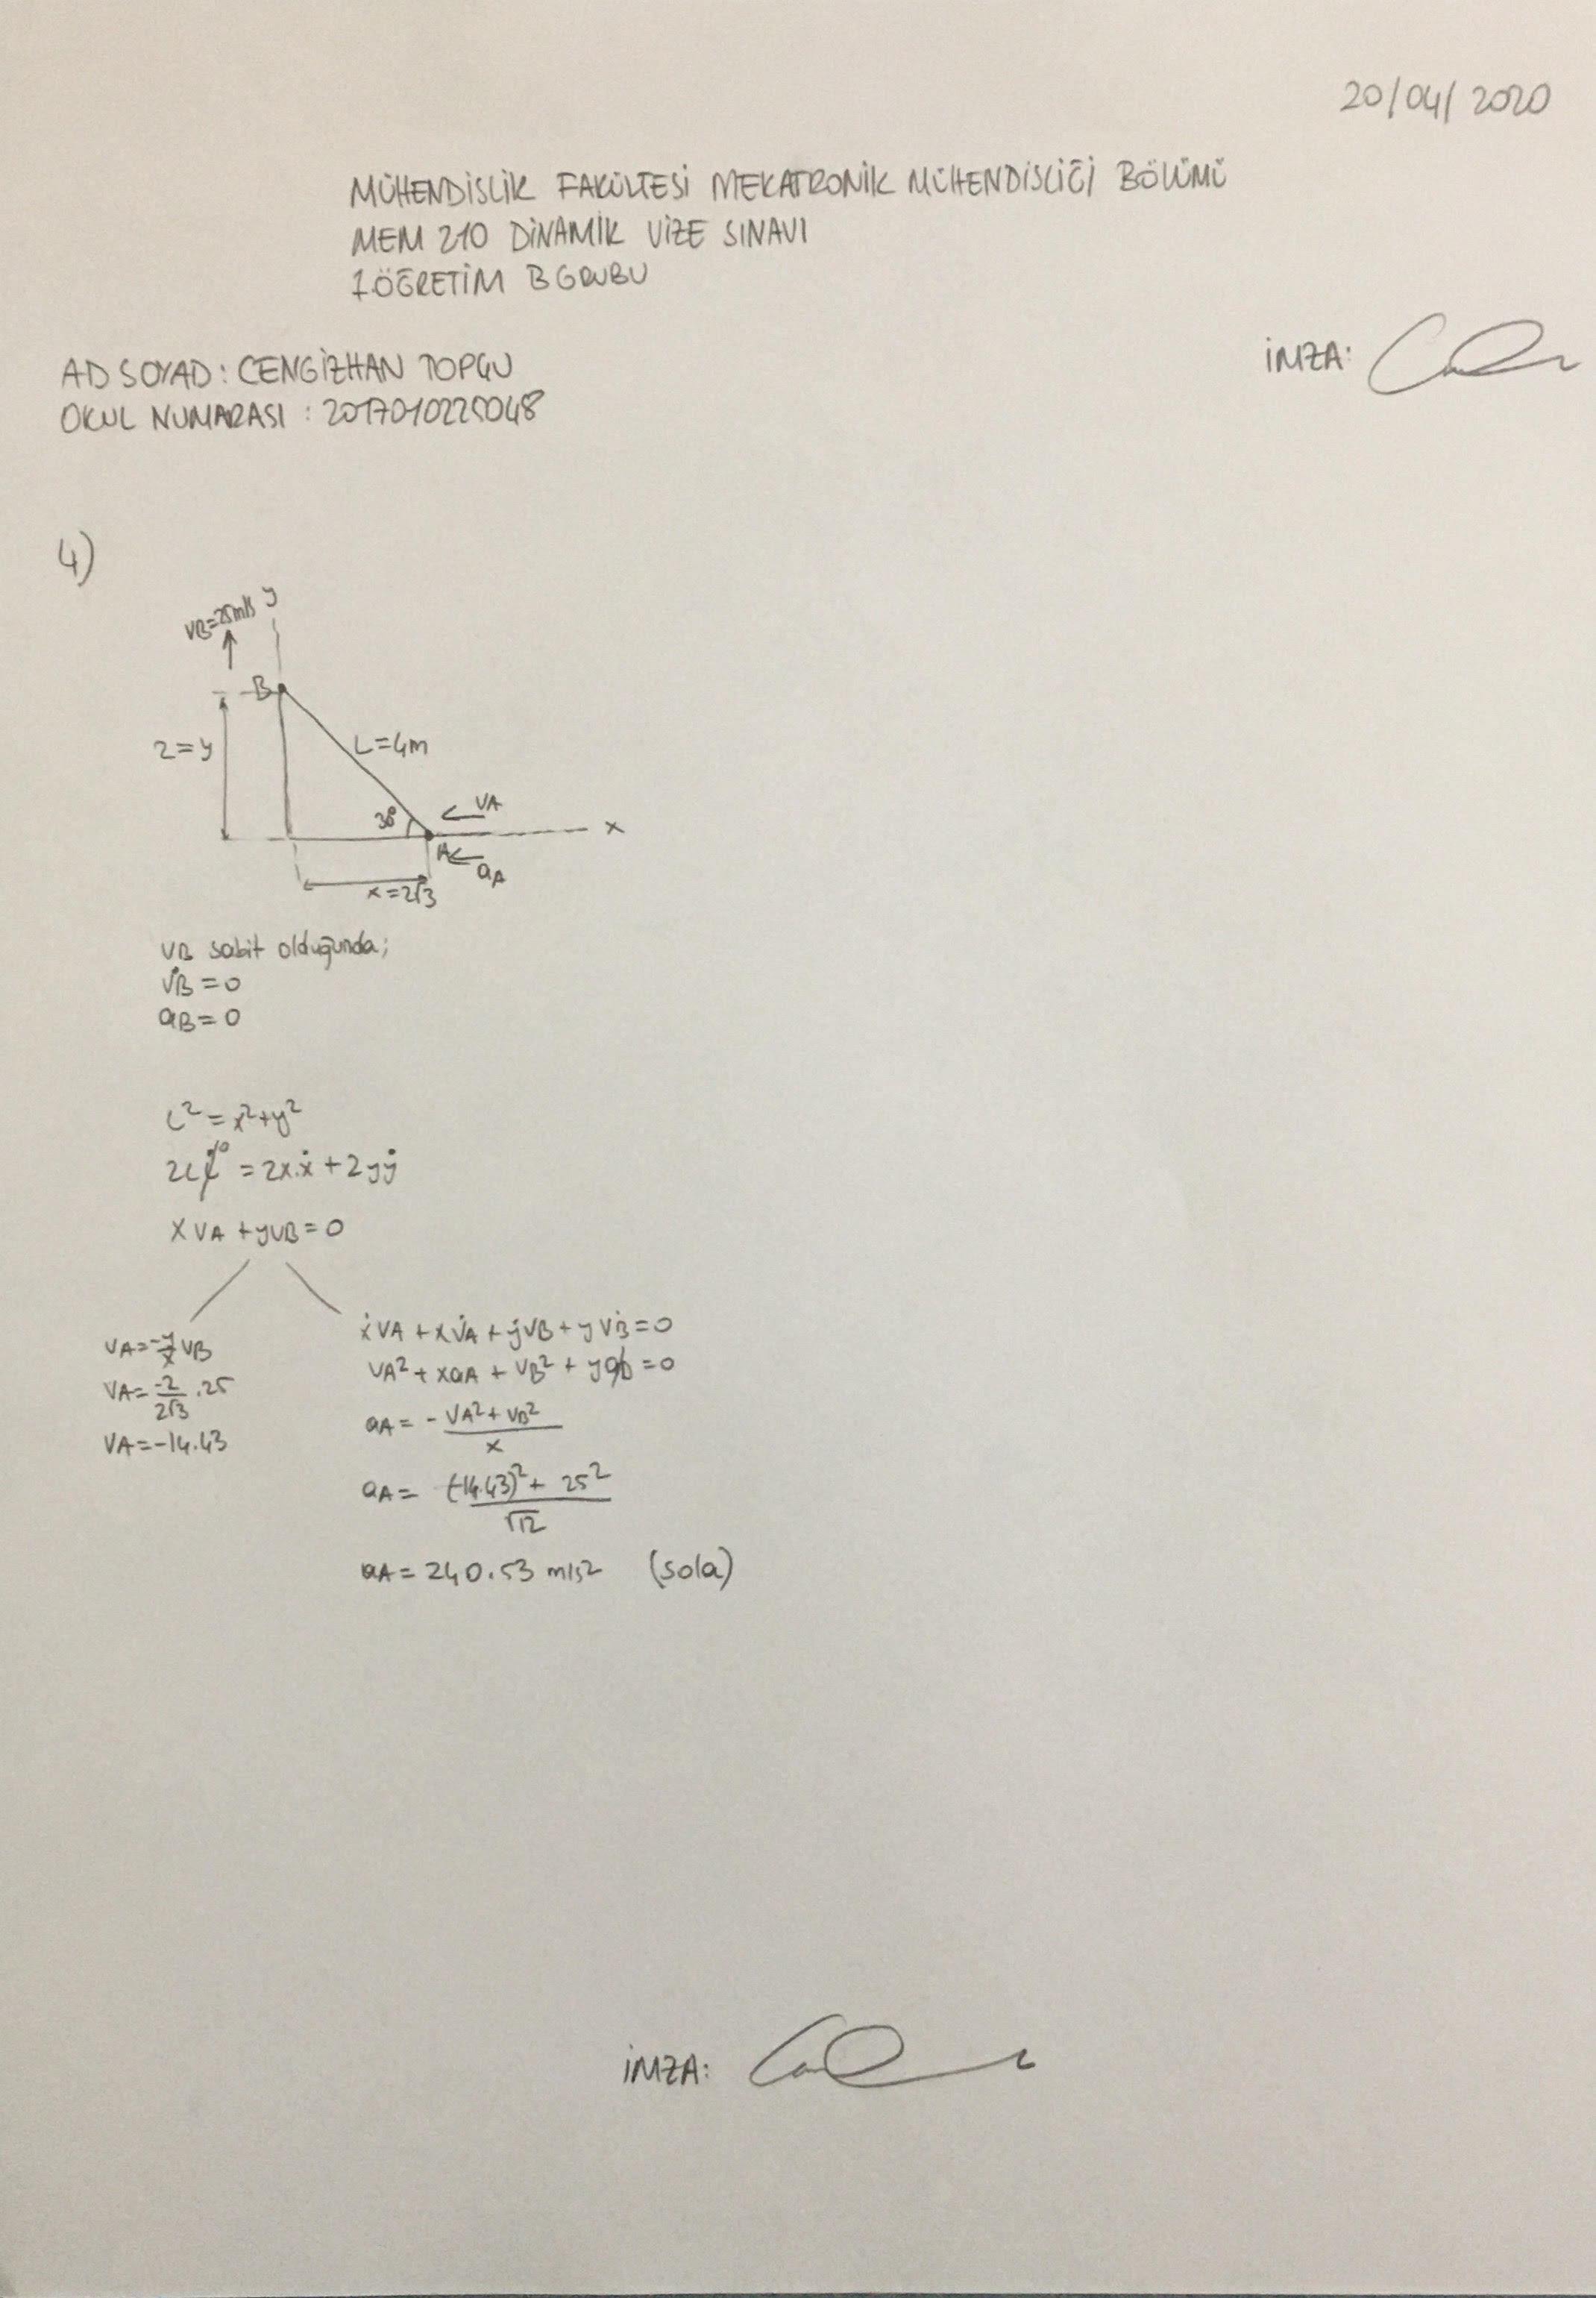 20/04/2020
MÜHENDİSLİK FAKÜLTESİ MEKATRONİK MÜHENDİSLİĞİ BÖLÜMÜ
MEM 210 DİNAMİK VİZE SINAVI
1.ÖĞRETİM B GRUBU
İMZA:
AD SOYAD: CENGİZHAN TOPÇU
OKUL NUMARASI : 2017010225048
4)
y
VB=25m/s
B
2=y
L=4m
30°
VA
x
A
aA
x=2√3
VB sabit olduğunda;
V̇B=0
aB=0
L²=x²+y²
2LL̇⁰=2x.ẋ+2yẏ
XVA+yVB=0
VA=-y/x VB
VA=-2/2√3 .25
VA=-14.43
ẋVA+xV̇A+ẏVB+yV̇B=0
VA²+xaA+VB²+yaB=0
aA= -VA²+VB²/x
aA= (-14.43)²+25²/√12
aA=240.53 m/s² (sola)
İMZA: